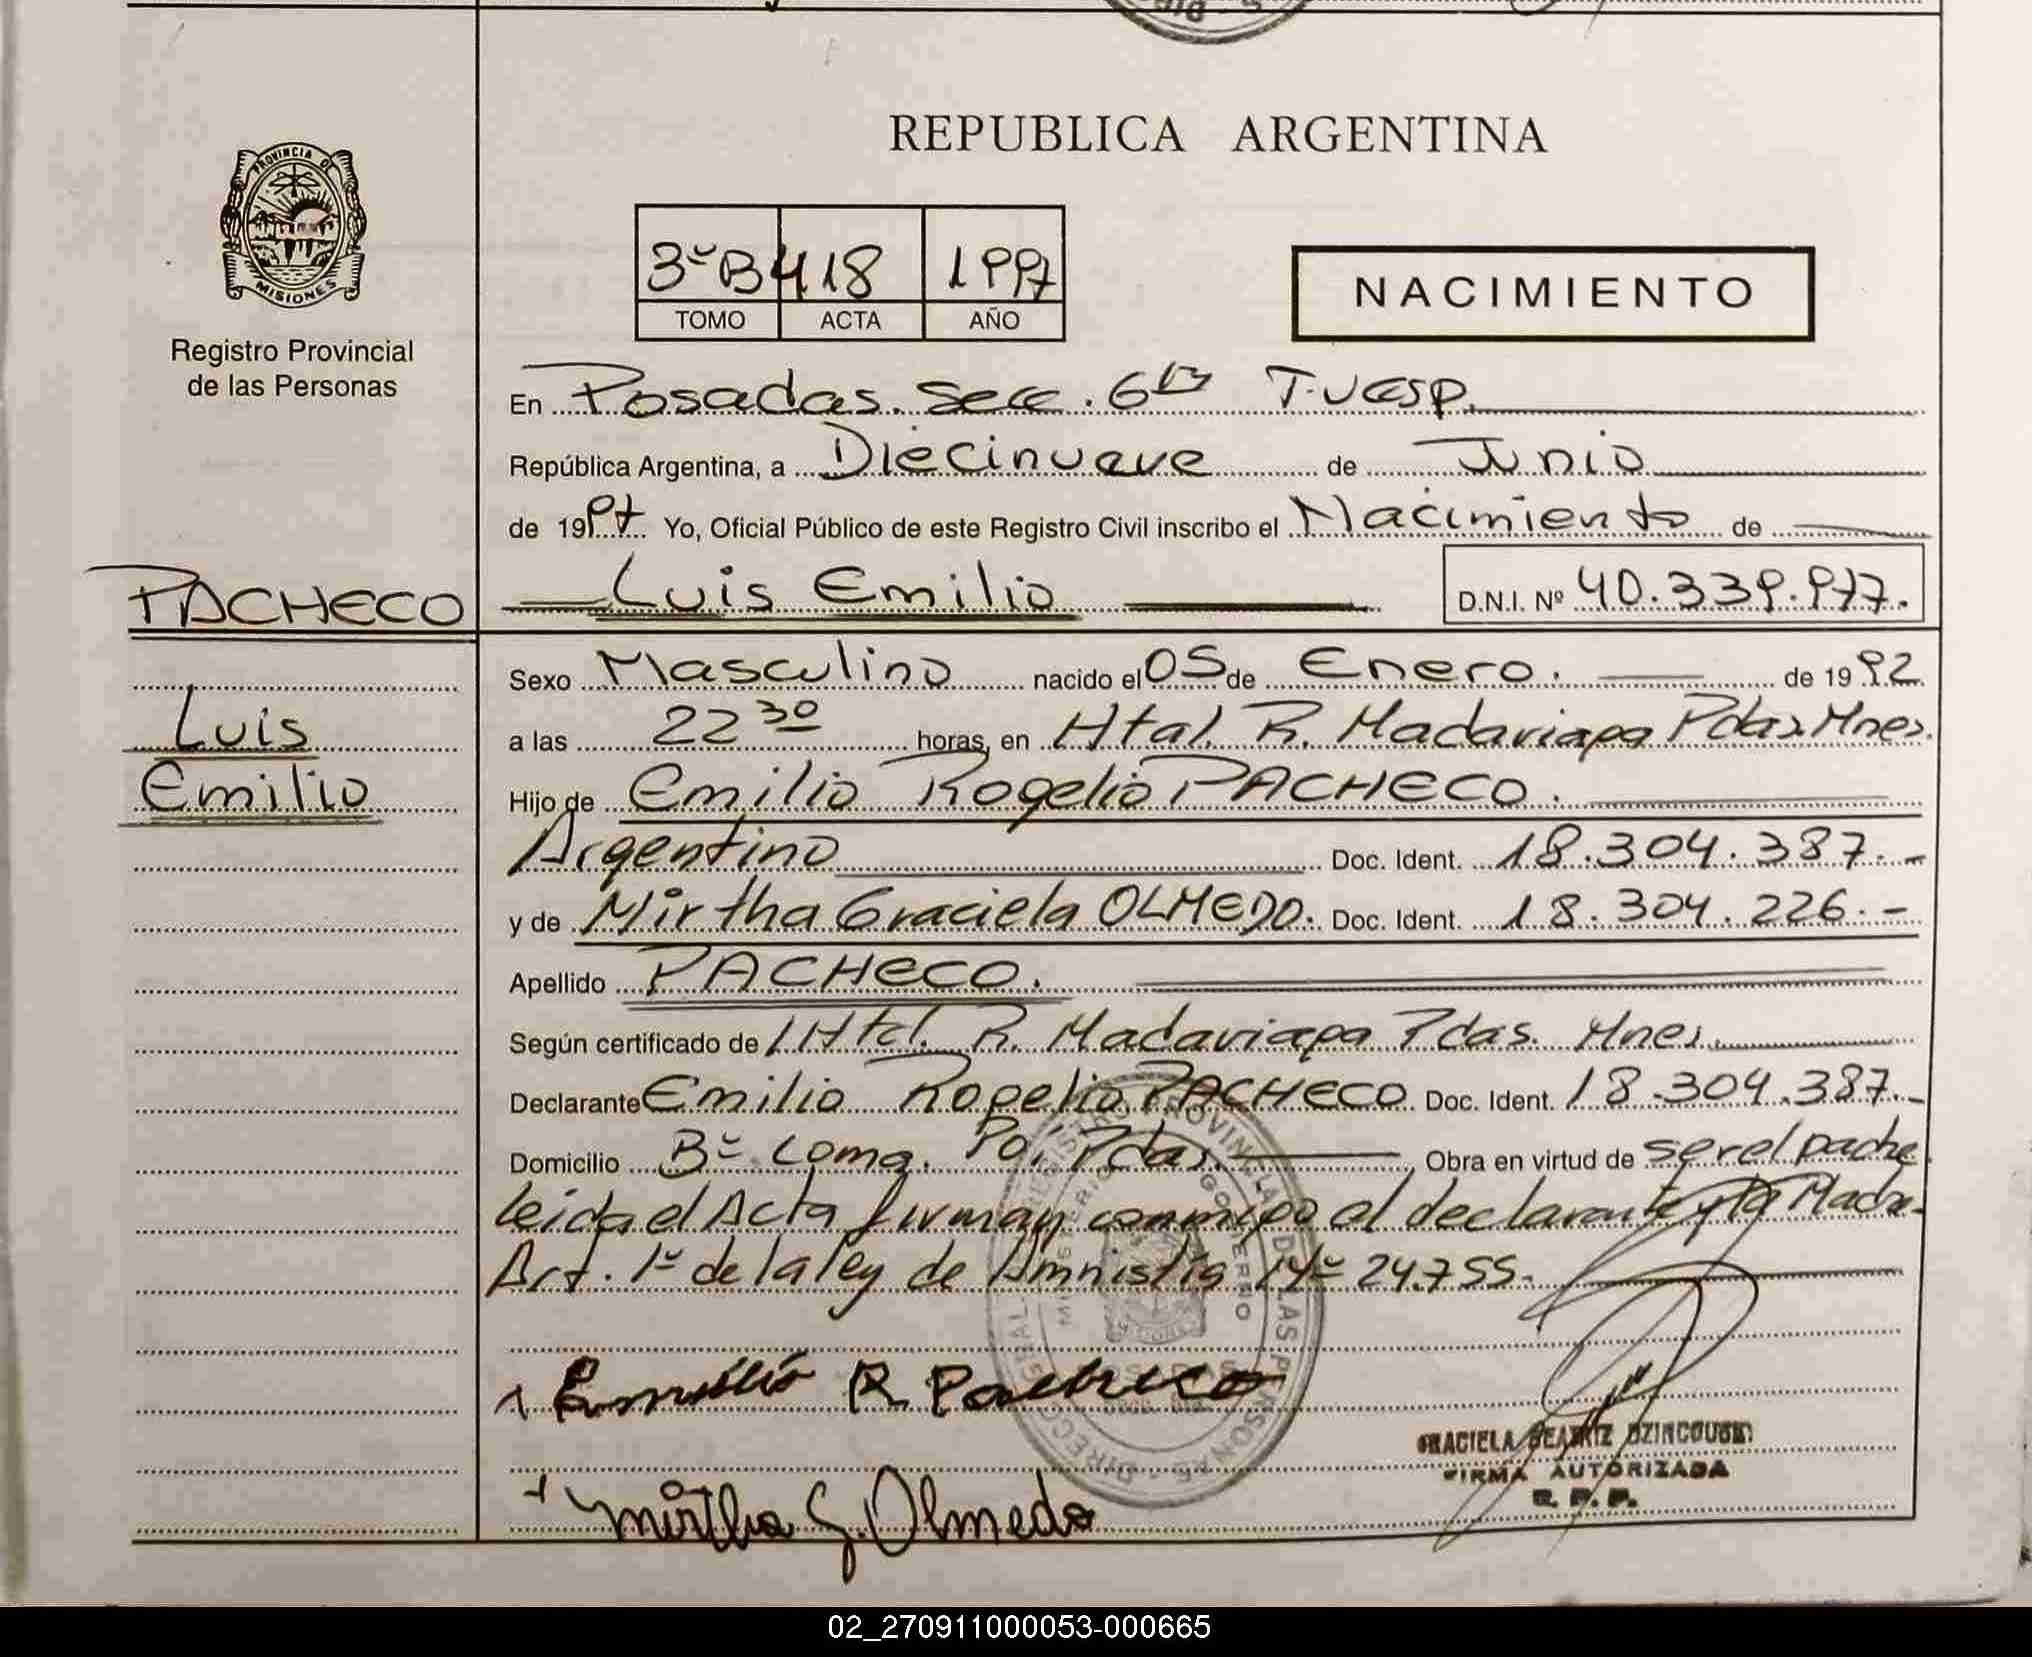 PROVINCIA DE
MISIONES
Registro Provincial
de las Personas
REPUBLICA ARGENTINA
3º B 418 1997
TOMO ACTA AÑO
NACIMIENTO
En Posadas. Secc. 6ta
República Argentina, a Diecinueve de Junio
de 1997 Yo, Oficial Público de este Registro Civil inscribo el Nacimiento de
PACHECO
Luis Emilio D.N.I. Nº 40.339.977.
Sexo Masculino nacido el 05 de Enero. de 1992
Luis
a las 22 30 horas, en Htal. R. Madariaga Pdas. Mnes.
Emilio
Hijo de Emilio Rogelio PACHECO.
Argentino Doc. Ident. 18.304.387.-
y de Mirtha Graciela OLMEDO. Doc. Ident. 18.304.226.-
Apellido PACHECO.
Según certificado de Htal. R. Madariaga Pdas. Mnes.
Declarante Emilio Rogelio PACHECO Doc. Ident. 18.304.387.-
Domicilio Bº Loma. Poí Pdas. Obra en virtud de ser el padre
Leida el Acta firman conmigo el declarante y la Madre.
Art. 1º de la ley de Amnistia Nº 24.755.
Emilio R. Pacheco
GRACIELA BEATRIZ
FIRMA AUTORIZADA
R. P. P.
Mirtha G. Olmedo
02_270911000053-000665